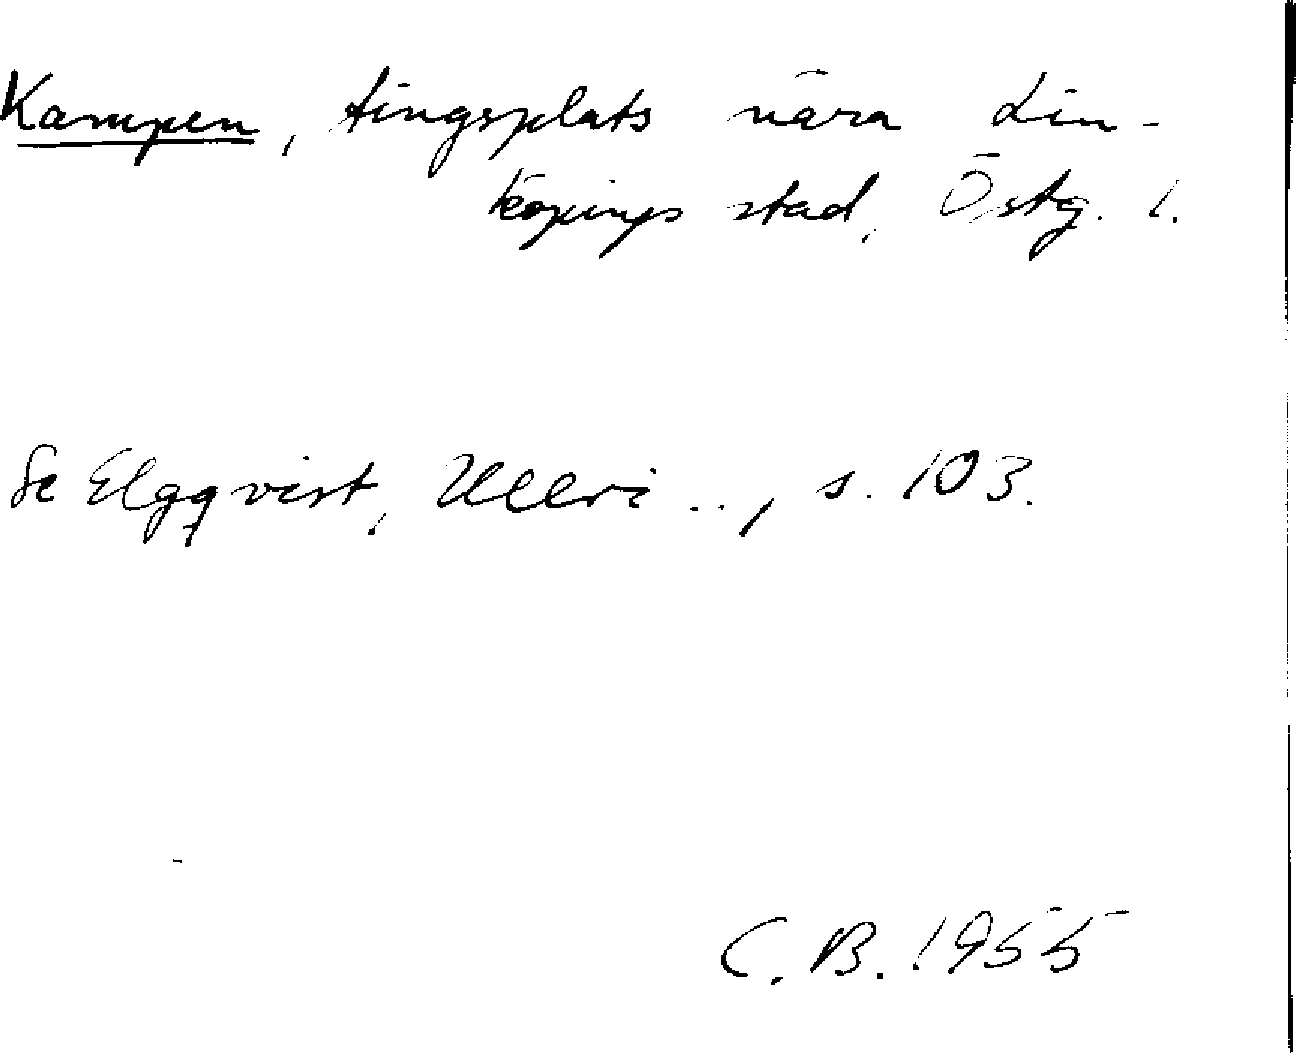 Kampen, tingsplats nära Lin-
köpings stad, Östg. l.
Se Elgqvist, Ullvi .., s. 103.
C. B. 1955